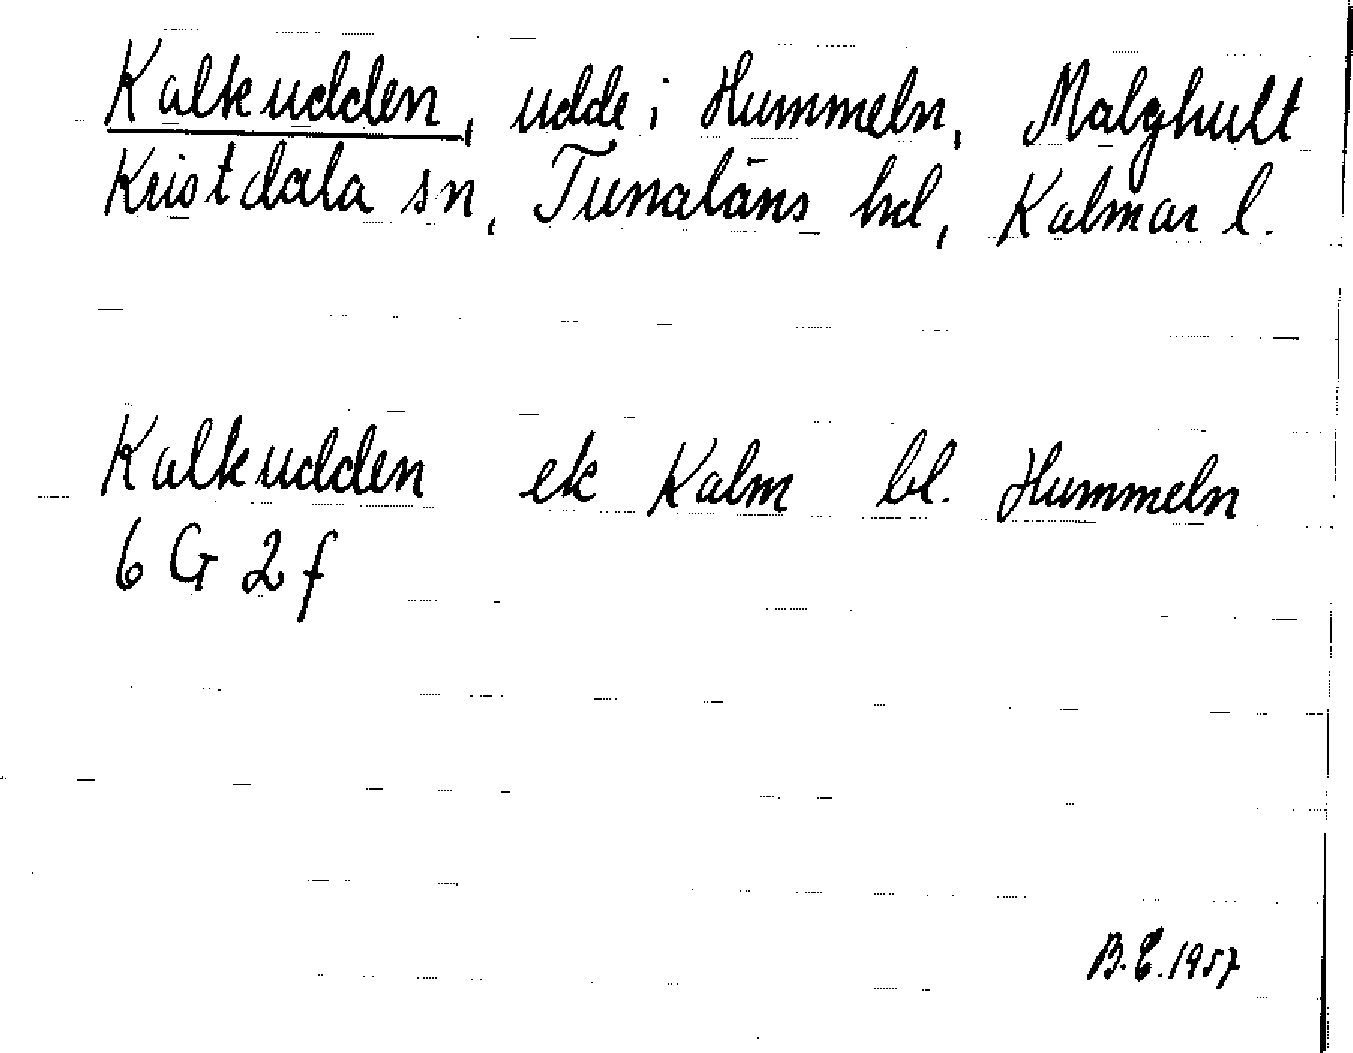 Kalkudden, udde i Hummeln, Malghult
Kristdala sn, Tunaläns hd, Kalmar l.
Kalkudden ek Kalm bl. Hummeln
6 G 2 f
B.E. 1957